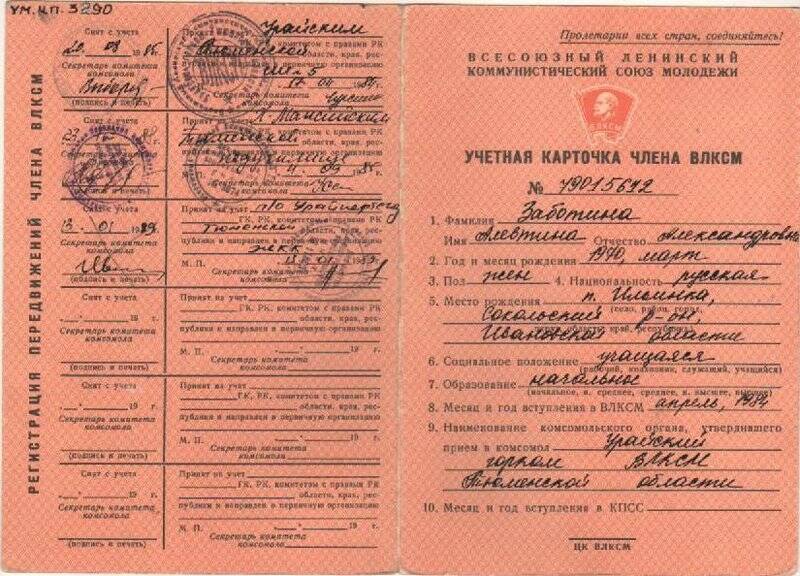 УМ. НП. 3290
РЕГИСТРАЦИЯ ПЕРЕДВИЖЕНИЙ ЧЛЕНА ВЛКСМ
Снят с учета
20 08 1985 г.
Секретарь комитета
комсомола
(подпись и печать)
Урайским
Тюменской
ГК, РК, комитетом с правами РК
области, края, рес-
публики и направлен в первичную организацию
шк-5
17 04 1984 г.
Секретарь комитета
комсомола
Снят с учета
23 88 г.
Секретарь комитета
(подпись и печать)
Принят на учет Х-Мансийским
ГК, РК, комитетом с правами РК
Тюменской области, края, рес-
публики и направлен в первичную организацию
педучилище
М. П. 4 09 1985 г.
Секретарь комитета
комсомола
Снят с учета
13 01 1989 г.
Секретарь комитета
комсомола
(подпись и печать)
Принят на учет п/о Урайнефтегаз
ГК, РК, комитетом с правами РК
Тюменской области, края, рес-
публики и направлен в первичную организацию
ЖКК
М. П. 13 01 1989 г.
Секретарь комитета
комсомола
Снят с учета
19 г.
Секретарь комитета
комсомола
(подпись и печать)
Принят на учет
ГК, РК, комитетом с правами РК
области, края, рес-
публики и направлен в первичную организацию
М. П. 19 г.
Секретарь комитета
комсомола
Снят с учета
19 г.
Секретарь комитета
комсомола
(подпись и печать)
Принят на учет
ГК, РК, комитетом с правами РК
области, края, рес-
публики и направлен в первичную организацию
М. П. 19 г.
Секретарь комитета
комсомола
Снят с учета
19 г.
Секретарь комитета
комсомола
(подпись и печать)
Принят на учет
ГК, РК, комитетом с правами РК
области, края, рес-
публики и направлен в первичную организацию
М. П. 19 г.
Секретарь комитета
комсомола
Пролетарии всех стран, соединяйтесь!
ВСЕСОЮЗНЫЙ ЛЕНИНСКИЙ
КОММУНИСТИЧЕСКИЙ СОЮЗ МОЛОДЕЖИ
ВЛКСМ
УЧЕТНАЯ КАРТОЧКА ЧЛЕНА ВЛКСМ
№ 49015692
1. Фамилия Заботина
Имя Алевтина Отчество Александровна
2. Год и месяц рождения 1970, март
3. Пол жен 4. Национальность русская
5. Место рождения п. Илсинка,
(село, район, город,
Сокольский р-он,
область, край, республика)
Ивановской области
6. Социальное положение учащаяся
(рабочий, колхозник, служащий, учащийся)
7. Образование начальное
(начальное, н. среднее, среднее, н. высшее, высшее)
8. Месяц и год вступления в ВЛКСМ апрель, 1984
9. Наименование комсомольского органа, утвердившего
прием в комсомол Урайский
горком ВЛКСМ
Тюменской области
10. Месяц и год вступления в КПСС
ЦК ВЛКСМ